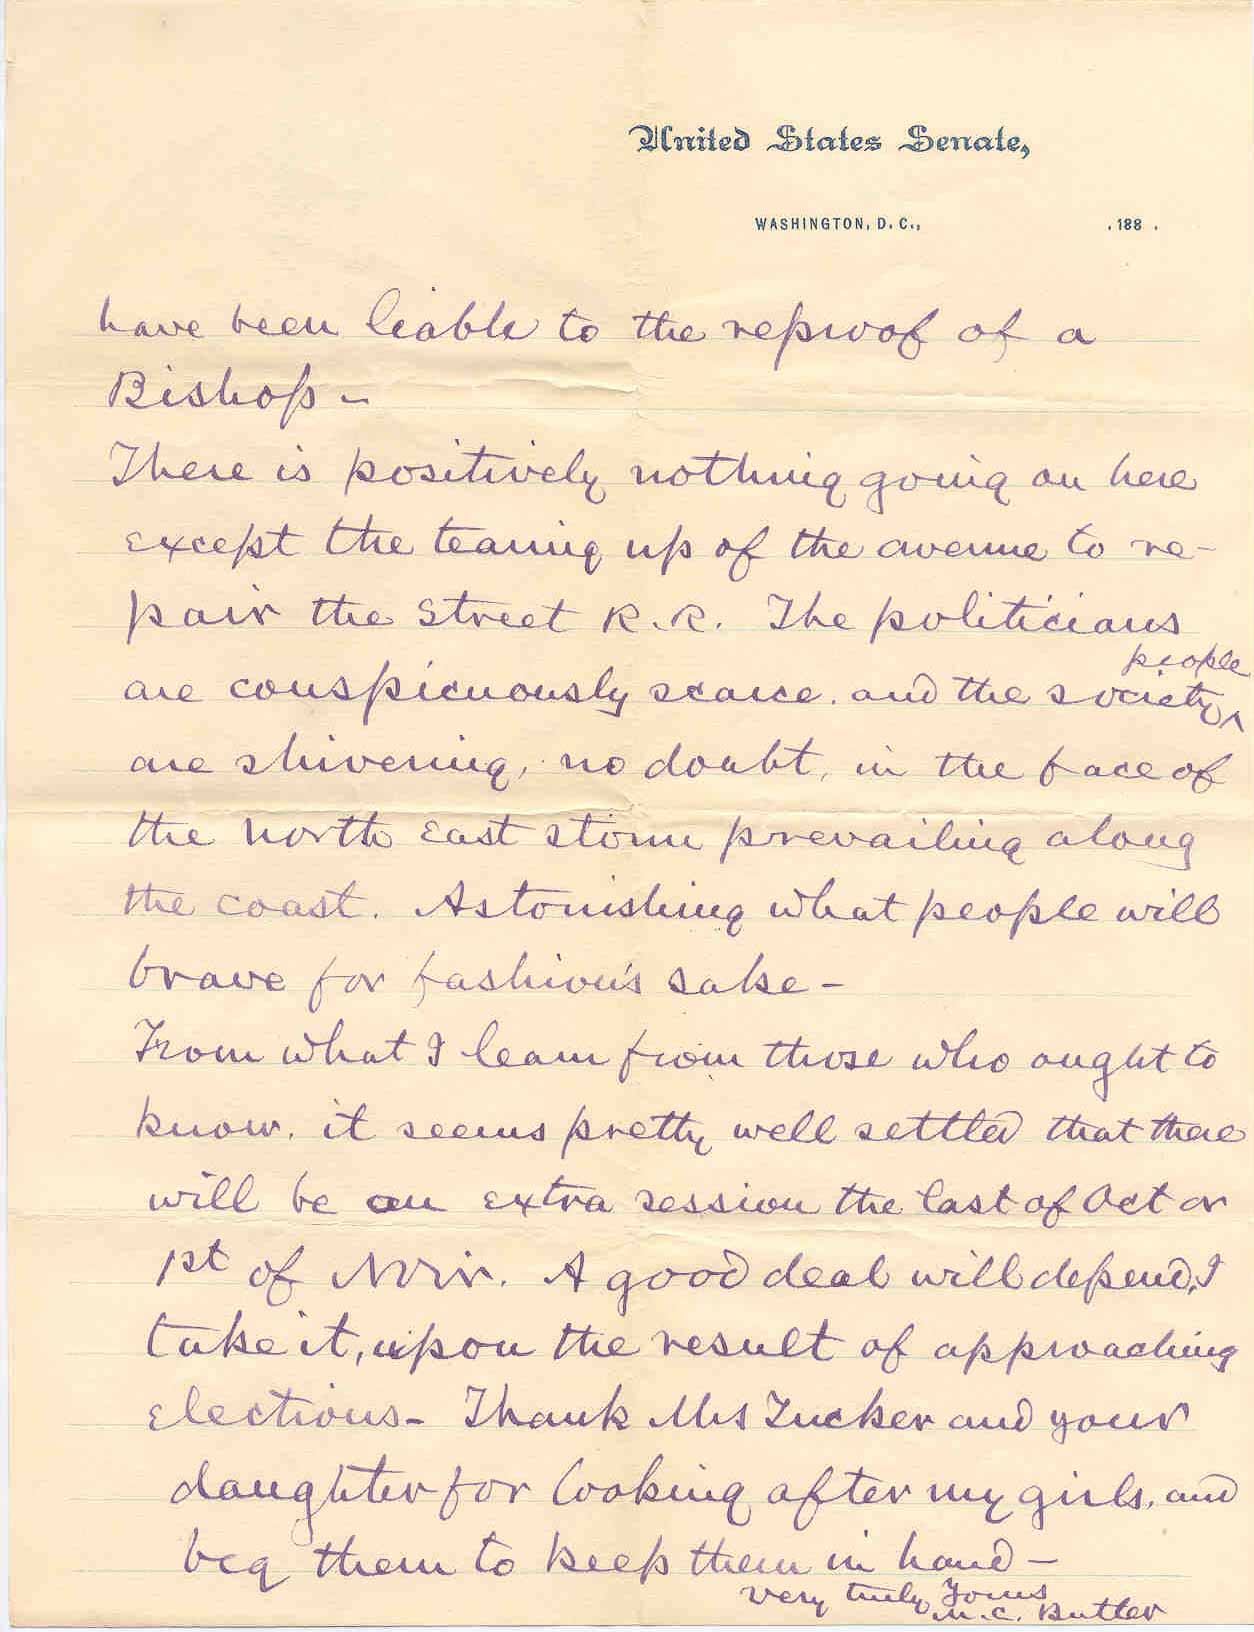 United States Senate,
WASHINGTON, D. C., , 188 .
have been liable to the reproof of a
Bishop -
There is positively nothing going on here
except the tearing up of the avenue to re-
pair the Street R.R. The politicians
people
are conspicuously scarce. and the society ^
are shivering, no doubt, in the face of
the north east storm prevailing along
the coast. Astonishing what people will
brave for fashion's sake -
From what I learn from those who ought to
know, it seems pretty well settled that there
will be an extra session the last of Oct or
1st of Nov. A good deal will depend, I
take it, upon the result of approaching
elections - Thank Mrs Tucker and your
daughter for looking after my girls, and
beg them to keep them in hand -
very truly Yours
M. C. Butler